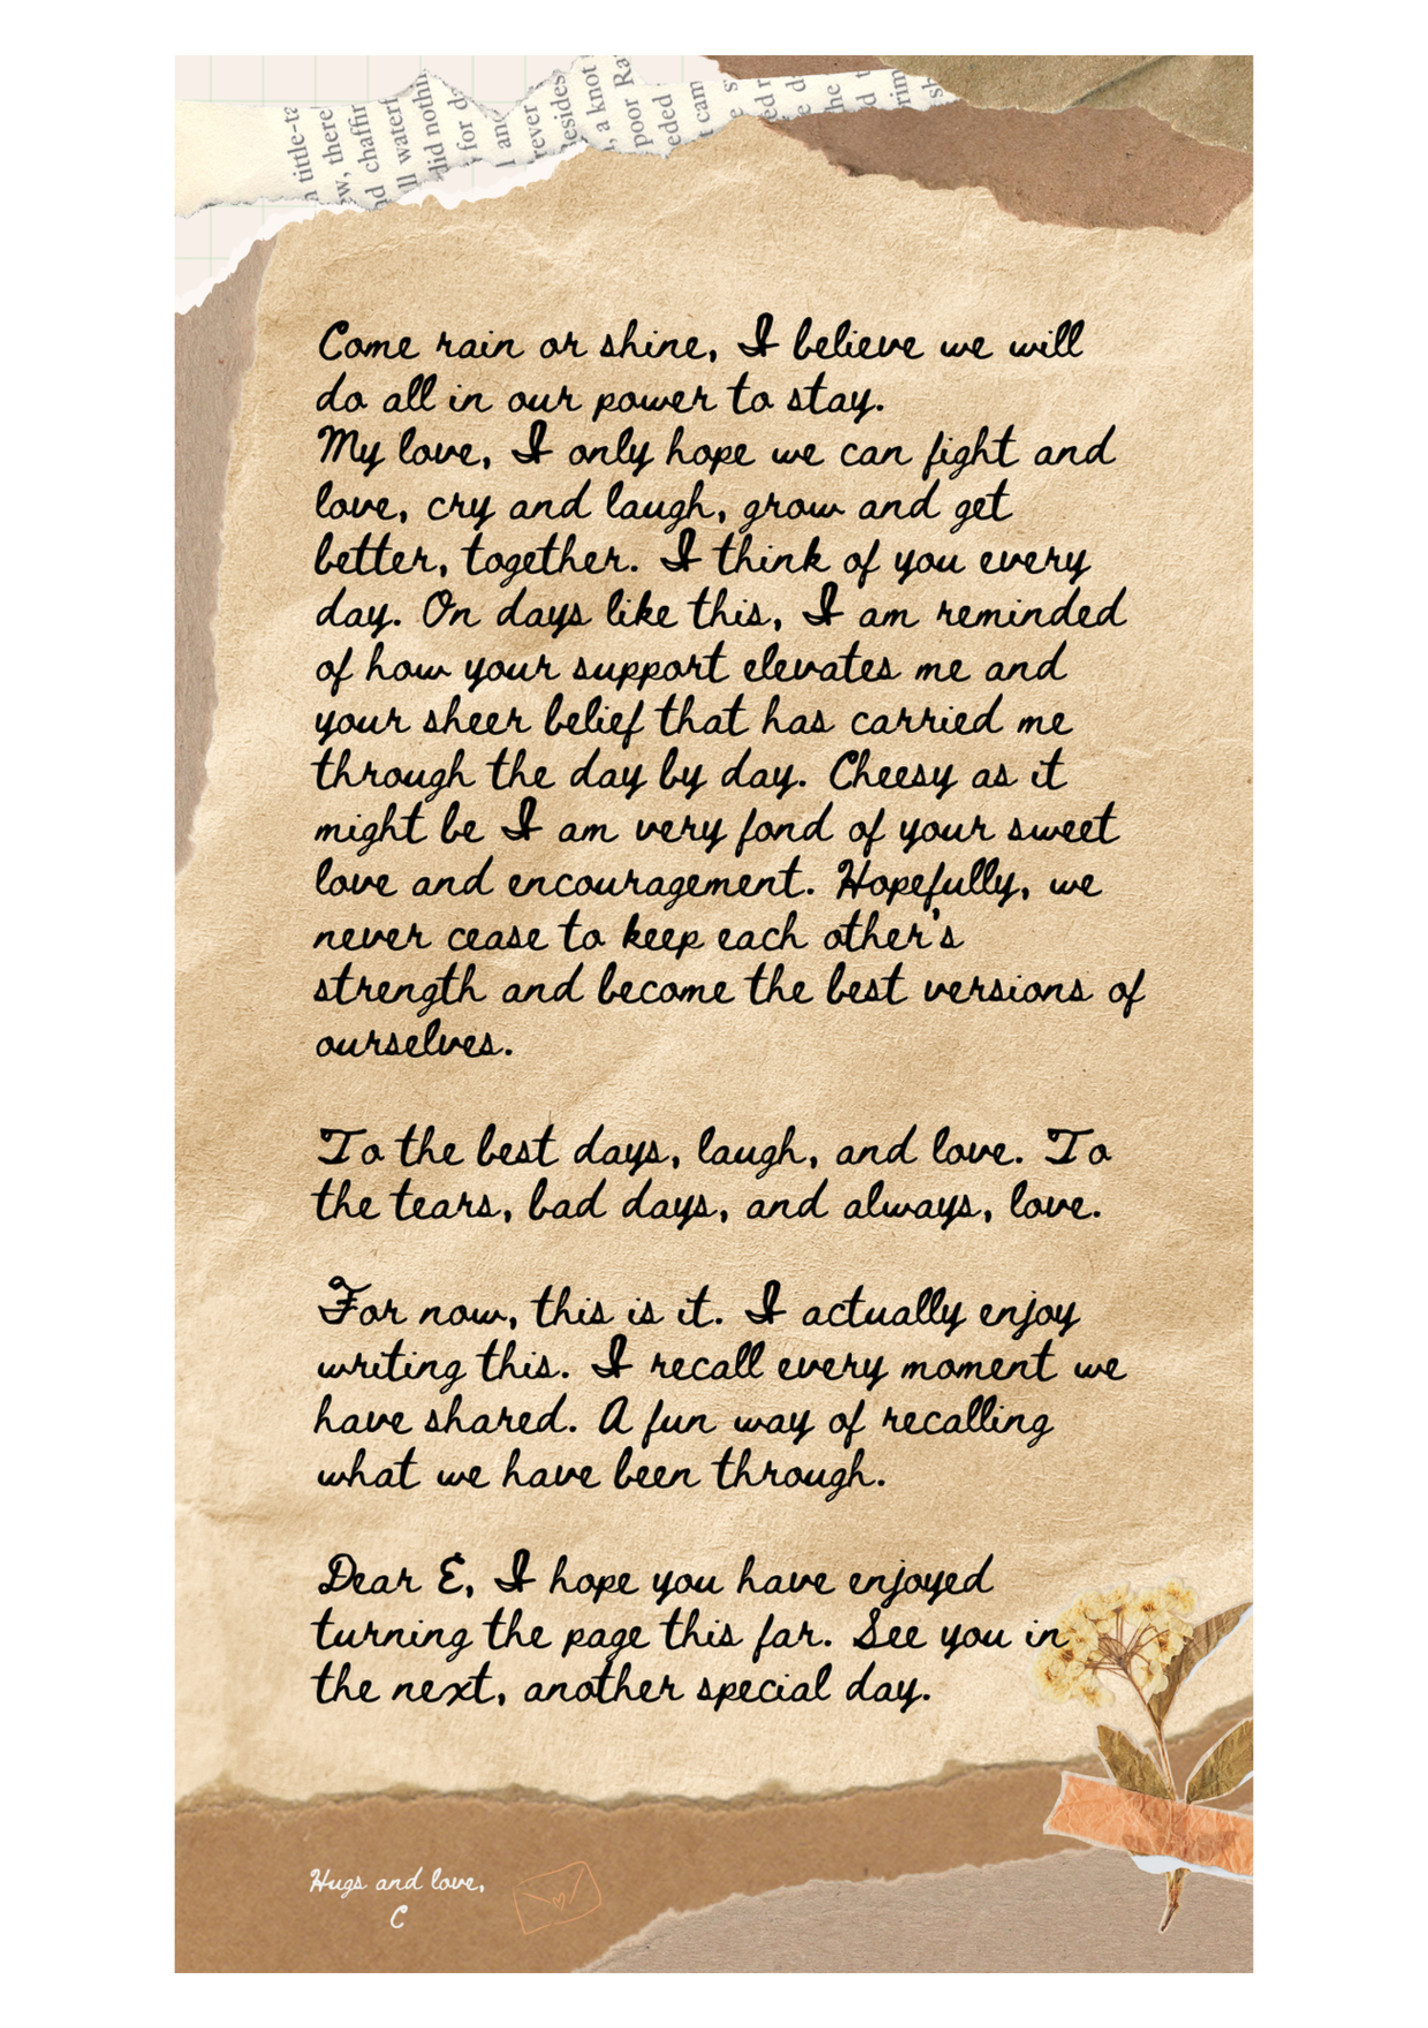 a tittle-ta
w, there
nd chaffir
ll watert
did nothi
for d
l and
rever
esides
, a knot
poor Ra
eded
t cam
e s
ed r
e d
the
d t
rim
sh
Come rain or shine, I believe we will
do all in our power to stay.
My love, I only hope we can fight and
love, cry and laugh, grow and get
better, together. I think of you every
day. On days like this, I am reminded
of how your support elevates me and
your sheer belief that has carried me
through the day by day. Cheesy as it
might be I am very fond of your sweet
love and encouragement. Hopefully, we
never cease to keep each other's
strength and become the best versions of
ourselves.
To the best days, laugh, and love. To
the tears, bad days, and always, love.
For now, this is it. I actually enjoy
writing this. I recall every moment we
have shared. A fun way of recalling
what we have been through.
Dear E, I hope you have enjoyed
turning the page this far. See you in
the next, another special day.
Hugs and love,
C